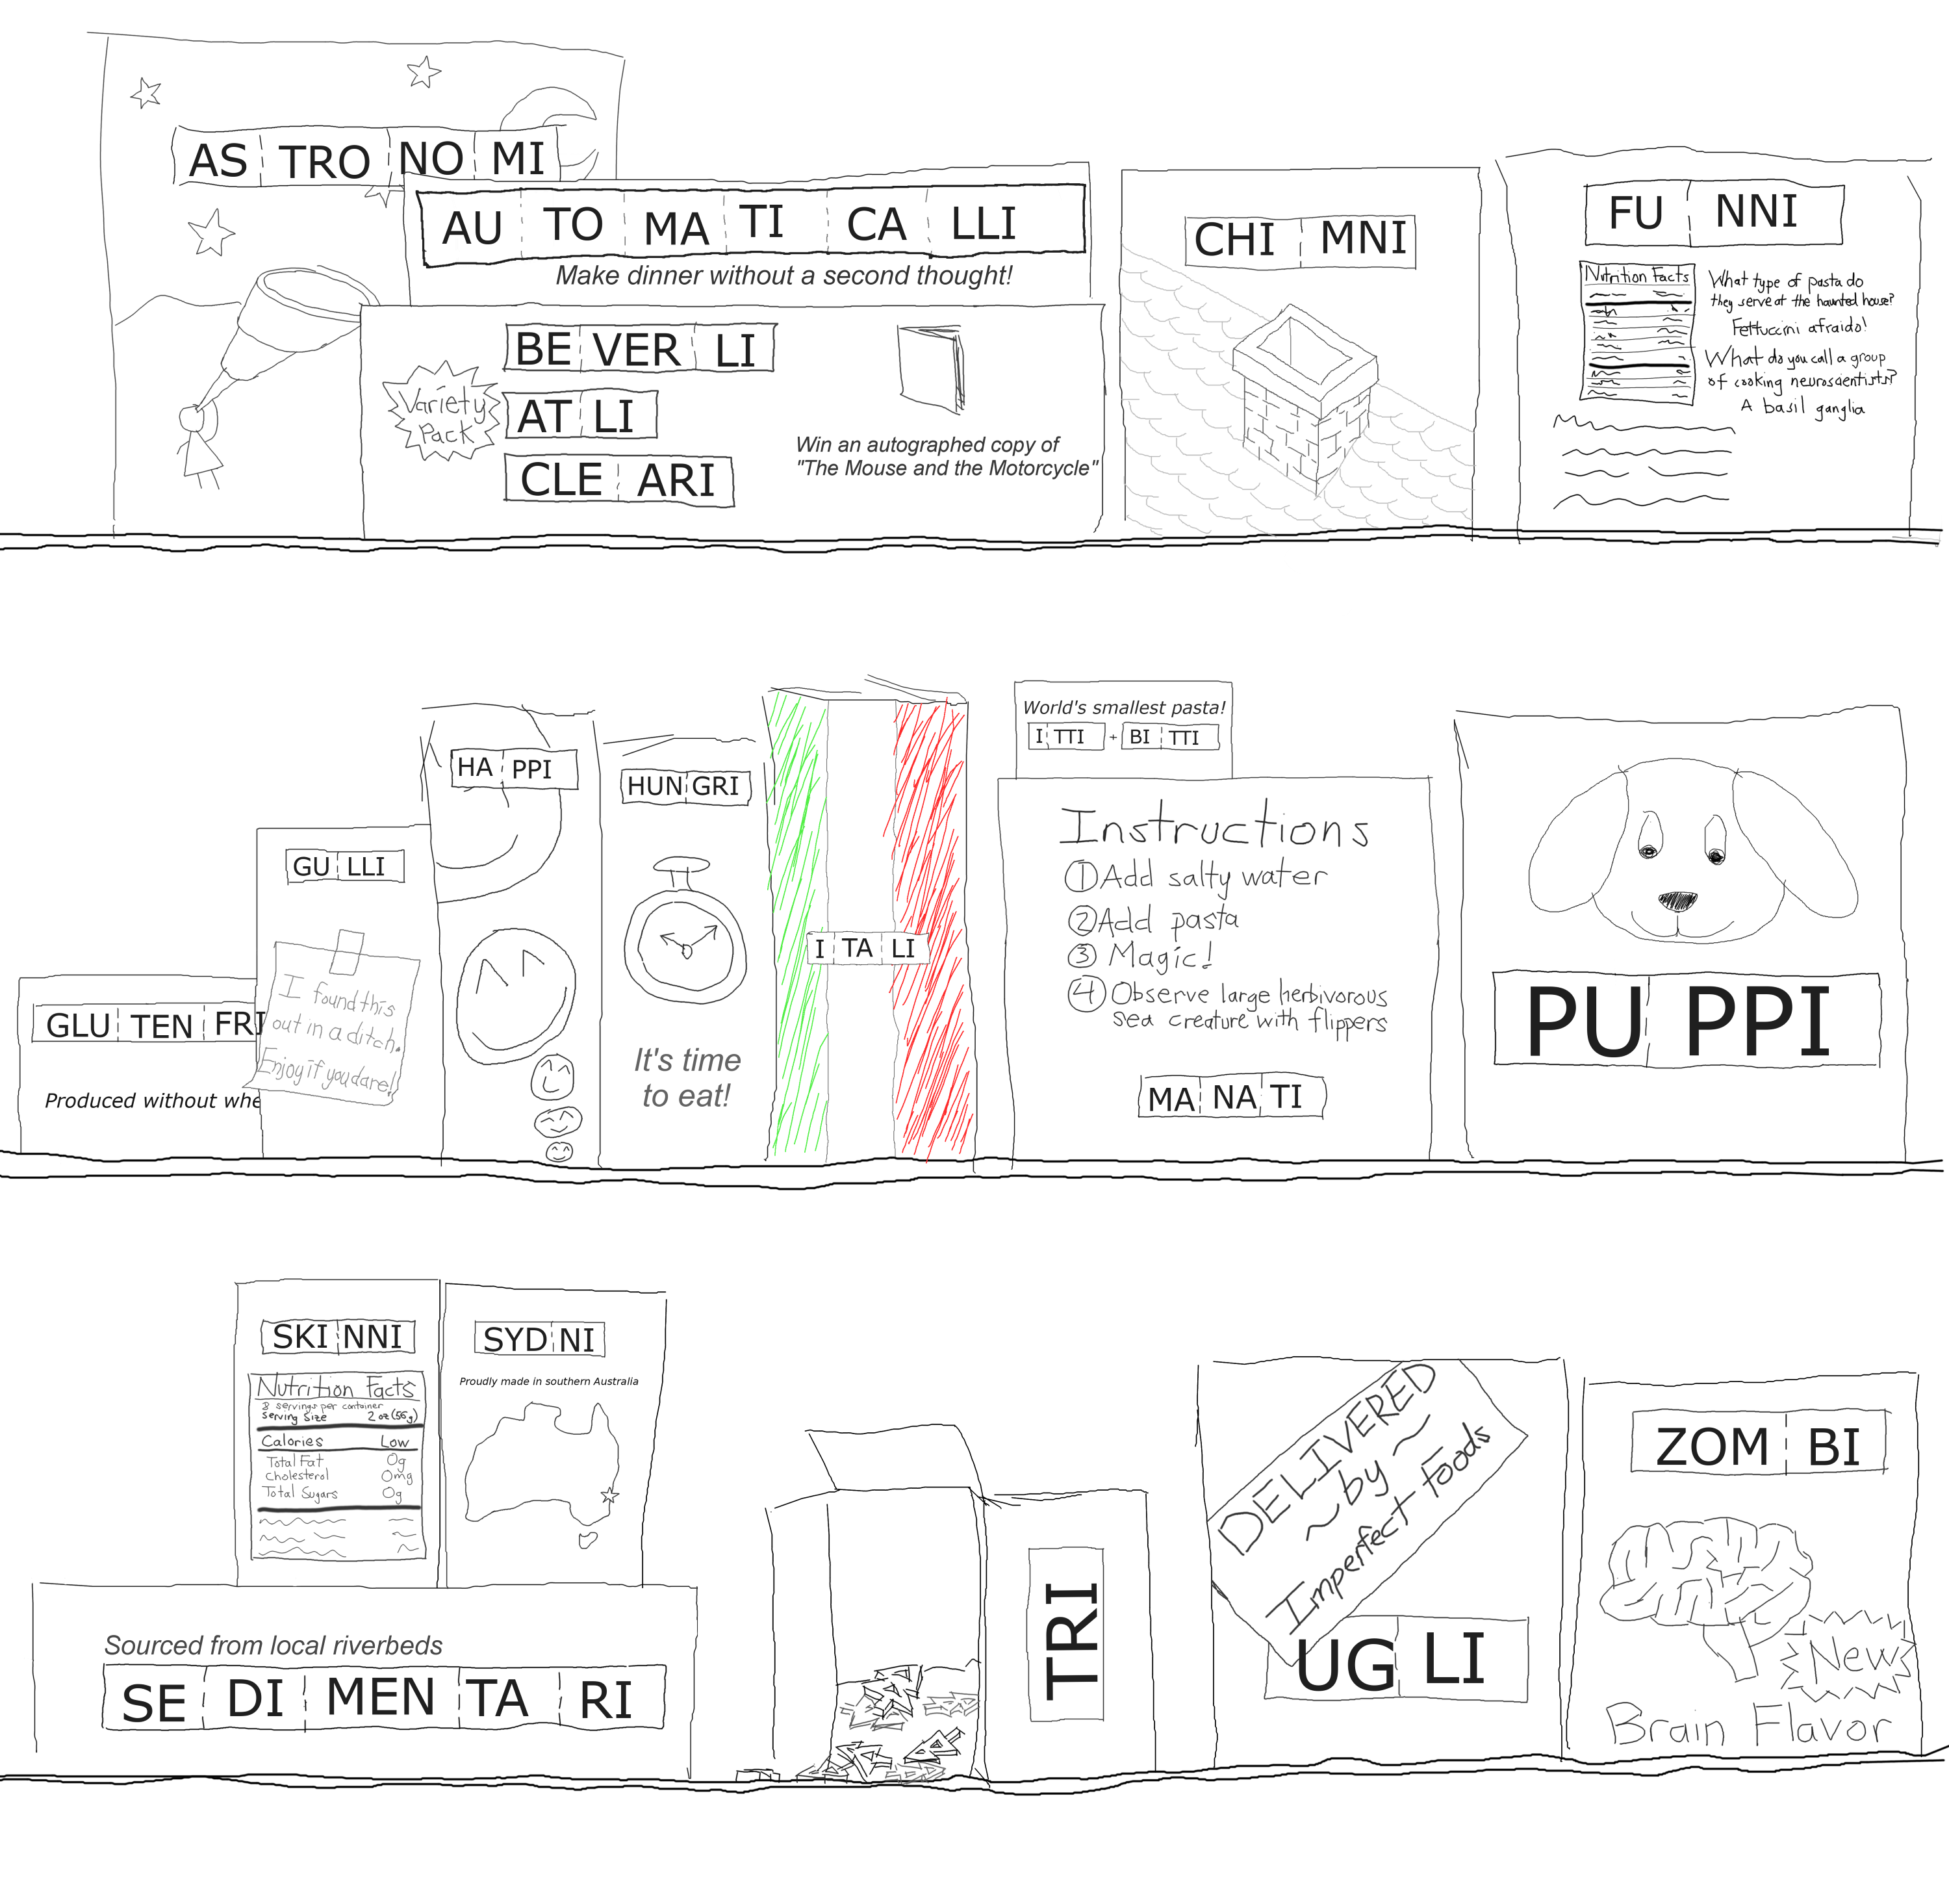 AS TRO NO MI
AU TO MA TI CA LLI
Make dinner without a second thought!
Variety
Pack
BE VER LI
AT LI
CLE ARI
Win an autographed copy of
"The Mouse and the Motorcycle"
CHI MNI
FU NNI
Nutrition Facts
What type of pasta do
they serve at the haunted house?
Fettuccini afraido!
What do you call a group
of cooking neuroscientists?
A basil ganglia
GLU TEN FRI
Produced without whe
GU LLI
I found this
out in a ditch.
Enjoy if you dare!
HA PPI
HUN GRI
It's time
to eat!
I TA LI
World's smallest pasta!
I TTI + BI TTI
Instructions
1 Add salty water
2 Add pasta
3 Magic!
4 Observe large herbivorous
sea creature with flippers
MA NA TI
PU PPI
SKI NNI
Nutrition Facts
8 servings per container
Serving Size 2 oz (56g)
Calories Low
Total Fat 0g
Cholesterol 0mg
Total Sugars 0g
SYD NI
Proudly made in southern Australia
Sourced from local riverbeds
SE DI MEN TA RI
TRI
DELIVERED
~ by ~
Imperfect Foods
UG LI
ZOM BI
New
Brain Flavor